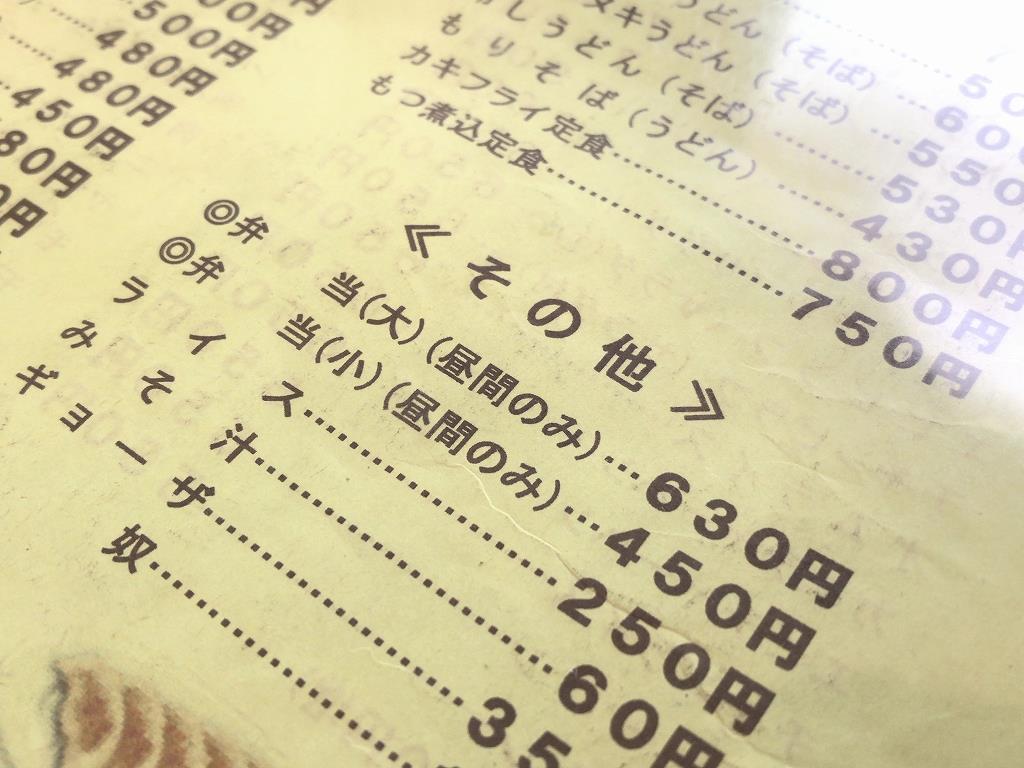 500円
480円
480円
450円
80円
0円
うどん（そば）…50
ヌキうどん（そば）…600
しうどん（そば）…550
もりそば（うどん）…530円
カキフライ定食…800円
もつ煮込定食…750円
≪その他≫
◎弁当（大）（昼間のみ）…630円
◎弁当（小）（昼間のみ）…450円
ライス…250円
みそ汁…60円
ギョーザ…35
奴…